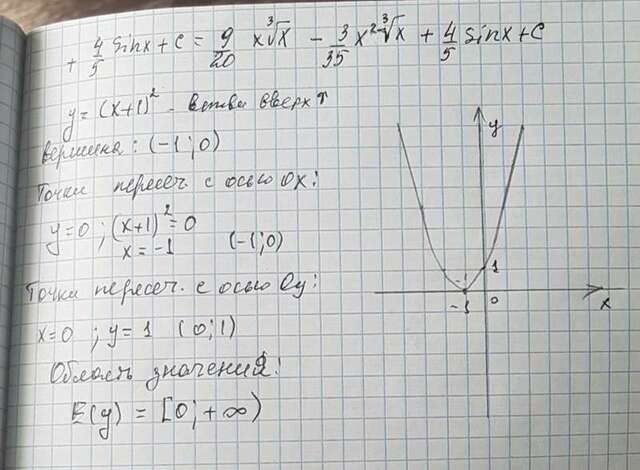 + 4/5 sinx + c = 9/20 x∛x - 3/35 x² ∛x + 4/5 sinx + c
y = (x+1)² - ветви вверх ↑
вершина: (-1; 0)
Точки пересеч. с осью Ox:
y=0 ; (x+1)² = 0
x = -1 (-1; 0)
Точки пересеч. с осью Oy:
x=0 ; y=1 (0; 1)
Область значений:
E(y) = [0; +∞)
y
1
-1
-1
0
x